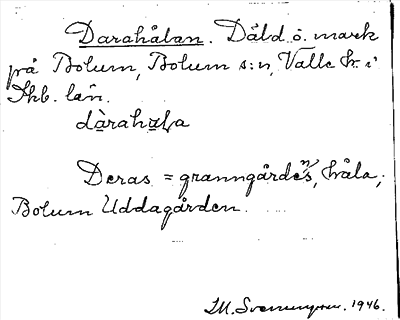 Darahålan. Däld ö. mark
på Bolum, Bolum s:n, Valle hr. i
Skb. län.
dàrahǫla
Deras = granngårdens, håla;
Bolum Uddagården.
1946.